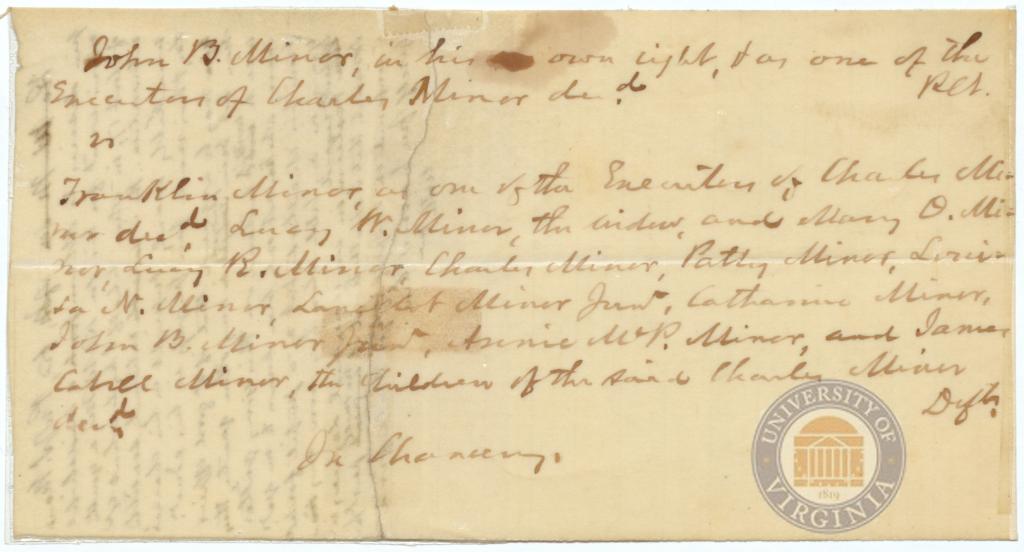 John B. Minor, in his own right, & as one of the
Executors of Charles Minor decd. Plt.
vs
Franklin Minor, as one of the Executors of Charles Mi-
nor decd, Lucy W. Minor, the widow, and Mary O. Mi-
nor, Lucy R. Minor, Charles Minor, Patty Minor, Loui-
sa N. Minor, Lancelot Minor Junr, Catharine Minor,
John B. Minor Junr, McP. Minor, and James
Cabell Minor, the Children of the said Charles Minor
decd. Defts.
In Chancery.
UNIVERSITY OF VIRGINIA
1819